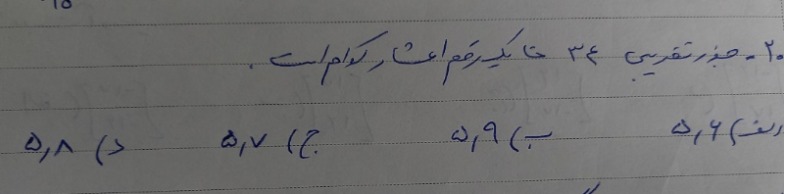 ۲۰- جذر تقریبی ۳۴ تا یک رقم اعشار کدام است.
الف) ۵,۶ ب) ۵,۹ ج) ۵,۷ د) ۵,۸